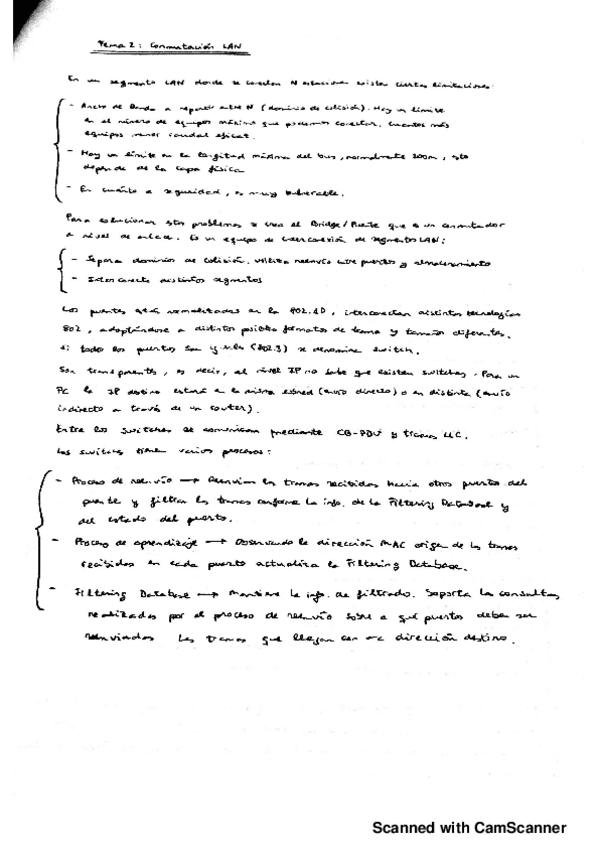 Tema 2: Conmutación LAN
En un segmento LAN donde se conectan N estaciones existen ciertas limitaciones:
- Ancho de Banda a repartir entre N (dominio de colisión). Hay un límite
en el número de equipos máximo que podemos conectar. Cuantos más
equipos menor caudal eficaz.
- Hay un límite en la longitud máxima del bus, normalmente 200m, esto
depende de la capa física
- En cuánto a seguridad, es muy vulnerable.
Para solucionar estos problemas se crea el Bridge/Puente que es un conmutador
a nivel de enlace. Es un equipo de interconexión de segmentos LAN:
- Separa dominios de colisión. Utiliza reenvío entre puertos y almacenamiento
- Interconecta distintos segmentos
Los puentes están normalizados en la 802.1D, interconectan distintas tecnologías
802, adaptándose a distintos posibles formatos de trama y tamaños diferentes.
Si todos los puertos son (802.3) se denomina switch.
Son transparentes, es decir, al nivel IP no sabe que existen switches. Para un
PC la IP destino estará en la misma subred (envío directo) o en distinta (envío
indirecto a través de un router).
Entre los switches se comunican mediante CB-PDU y tramas LLC.
Los switches tienen varios procesos:
- Proceso de reenvío → Reenvían las tramas recibidas hacia otros puertos del
puente y filtran las tramas conforme la info. de la Filtering Database y
del estado del puerto.
- Proceso de aprendizaje → Observando la dirección MAC origen de las tramas
recibidas en cada puerto actualiza la Filtering Database.
- Filtering Database → Mantiene la info. de filtrado. Soporta las consultas
realizadas por el proceso de reenvío sobre a qué puertos deben ser
reenviadas las tramas que llegan con una dirección destino.
Scanned with CamScanner